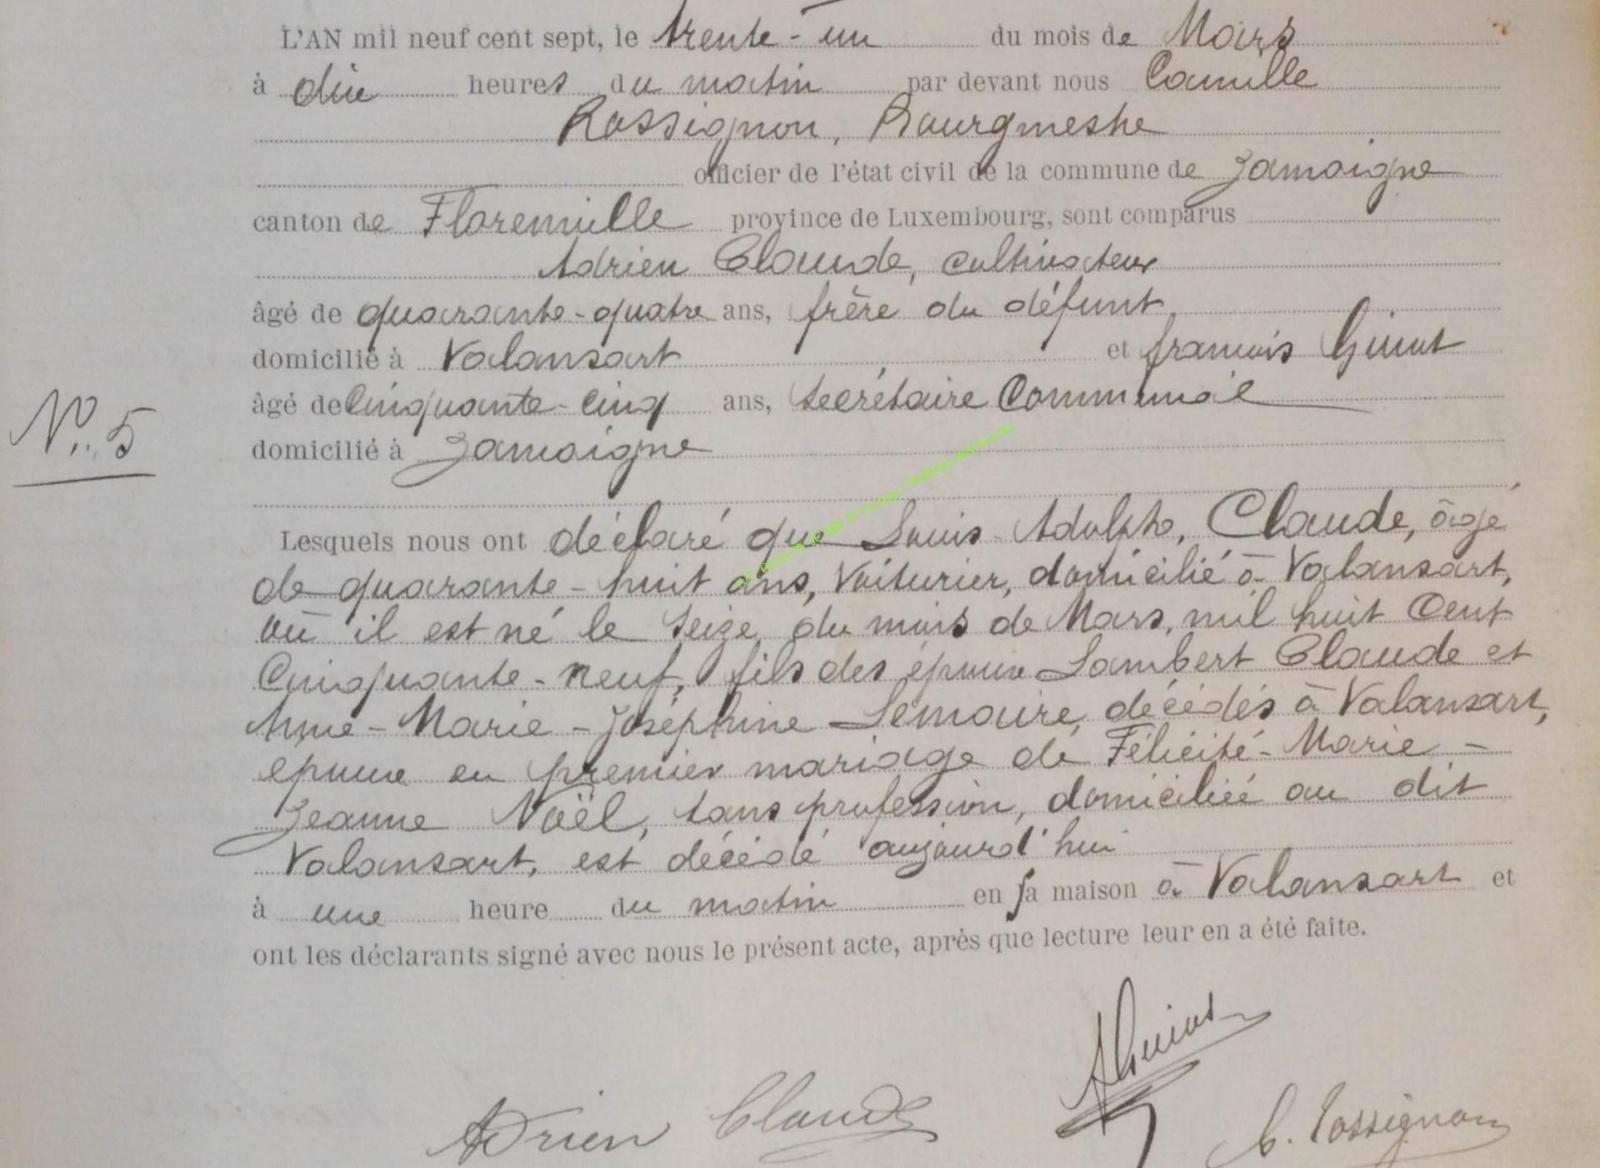 L'AN mil neuf cent sept, le trente-un du mois de Mars
à dix heures du matin par devant nous Camille
Rossignon, Bourgmestre
officier de l'état civil de la commune de Jamoigne
canton de Florenville province de Luxembourg, sont comparus
Adrien Claude, cultivateur
âgé de quarante-quatre ans, frère du défunt,
domicilié à Valansart et françois Guiot
âgé de Cinquante-cinq ans, Secrétaire Communal
N° 5
domicilié à Jamoigne
Lesquels nous ont déclaré que Louis Adolphe, Claude, âgé
de quarante-huit ans, Voiturier, domicilié à Valansart,
où il est né le Seize, du mois de Mars, mil huit Cent
Cinquante-neuf, fils des époux Lambert Claude et
Anne-Marie-Joséphine Lemaire, décédés à Valansart,
époux en premier mariage de Félicité-Marie-
Jeanne Noël, sans profession, domiciliée au dit
Valansart, est décédé aujourd'hui
à une heure du matin en sa maison à Valansart et
ont les déclarants signé avec nous le présent acte, après que lecture leur en a été faite.
Adrien Claude
C. Rossignon